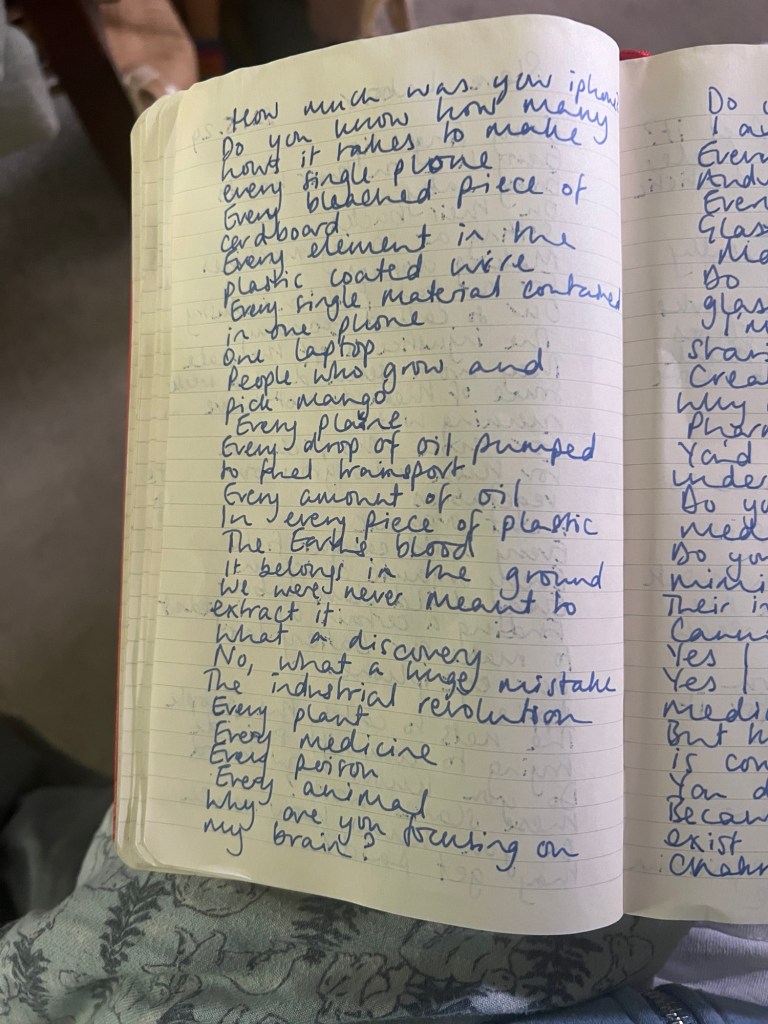 How much was your iphone
Do you know how many
hours it takes to make
every single phone
Every bleached piece of
cardboard
Every element in the
plastic coated wire
Every single material contained
in one phone
One laptop
People who grow and
pick mango
Every plane
Every drop of oil pumped
to fuel transport
Every amount of oil
In every piece of plastic
The Earth's blood
It belongs in the ground
We were never meant to
extract it
What a discovery
No, what a huge mistake
The industrial revolution
Every plant
Every medicine
Every poison
Every animal
Why are you focusing on
my brain?
Do
I
Every
Do
Yes I
Yes I
But
is
You
exist